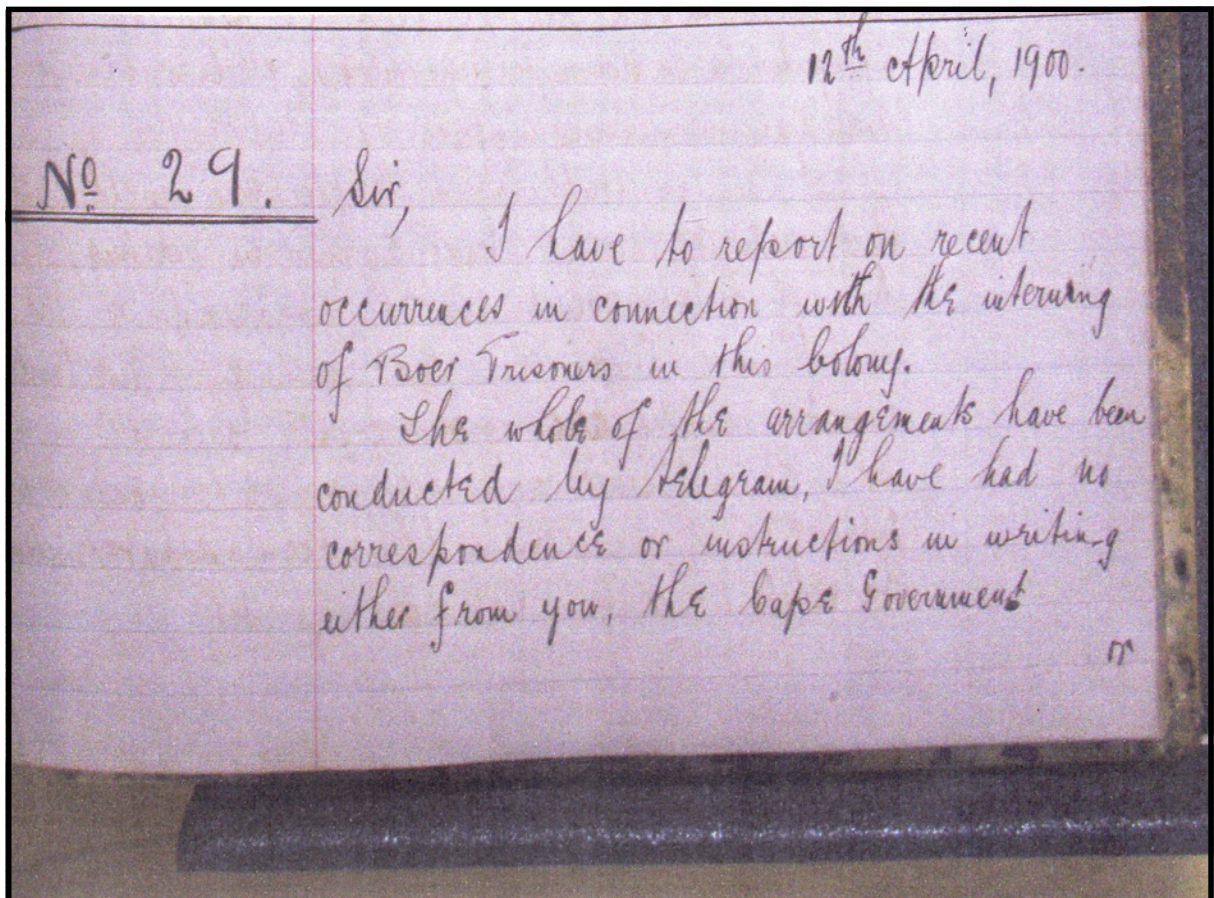 12th April, 1900.
No 29.
Sir,
I have to report on recent
occurrences in connection with the interning
of Boer Prisoners in this Colony.
The whole of the arrangements have been
conducted by telegram, I have had no
correspondence or instructions in writing
either from you, the Cape Government
or